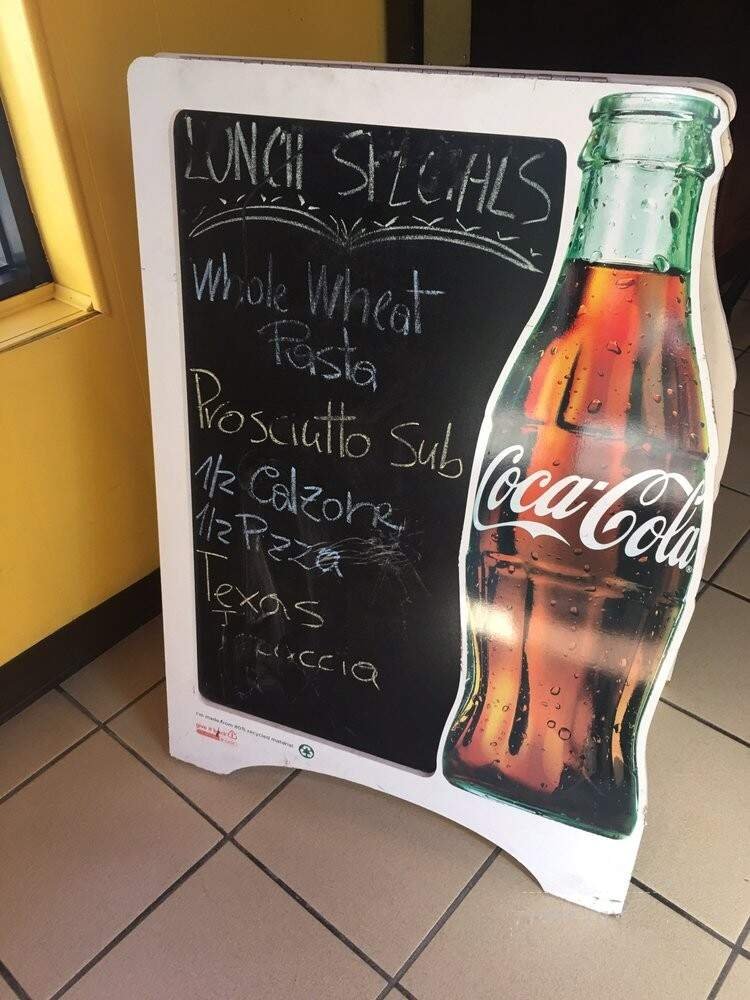 LUNCH SPECIALS
Whole Wheat
Pasta
Prosciutto Sub
1/2 Calzone
1/2 Pizza
Texas
Coca-Cola
I'm made from 80% recycled material
give it back